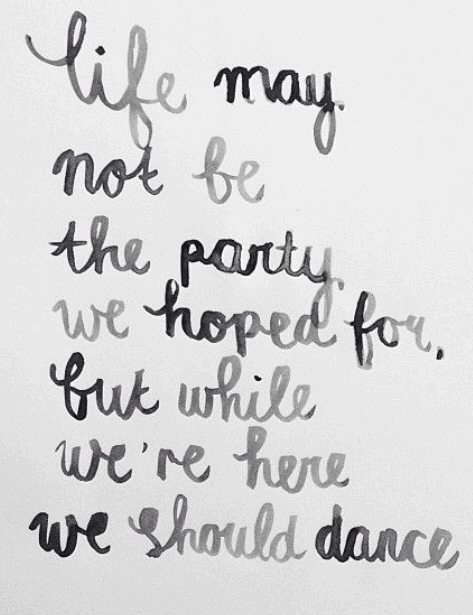 life may
not be
the party
we hoped for,
but while
we're here
we should dance